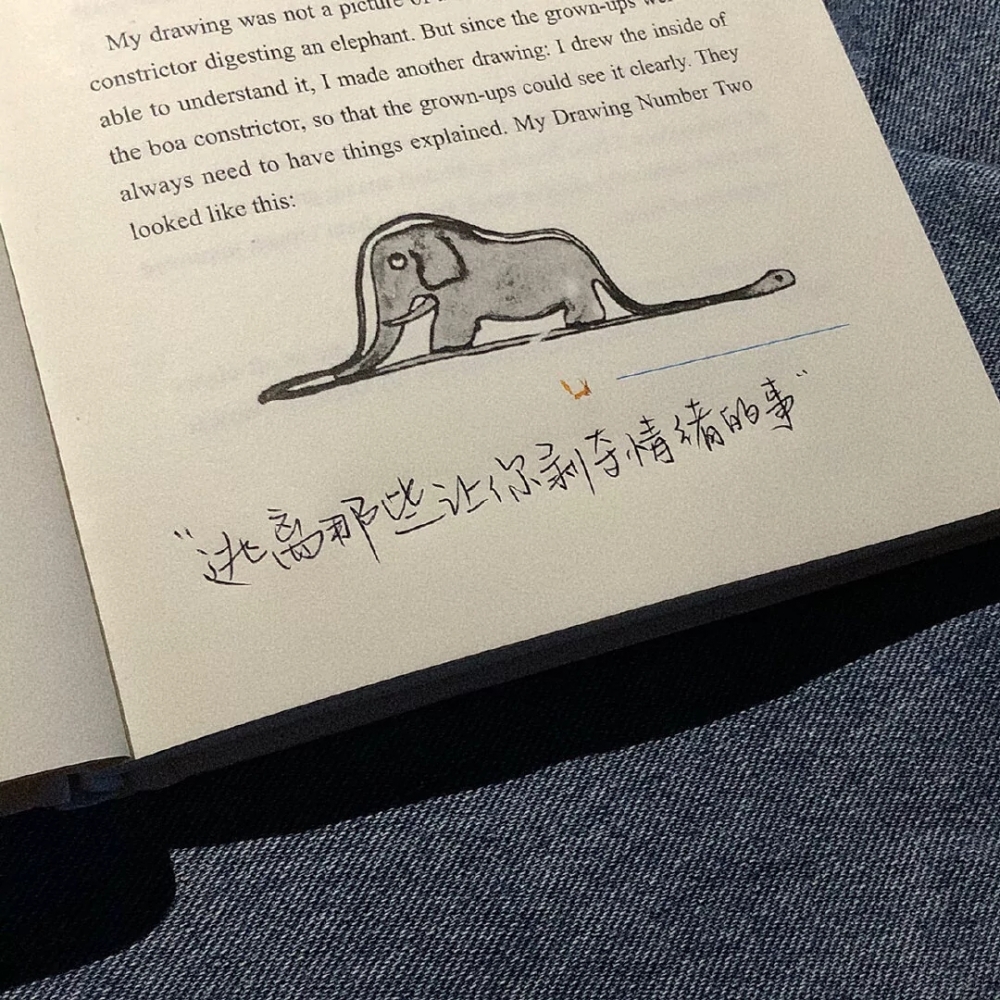 My drawing was not a picture of
constrictor digesting an elephant. But since the grown-ups
able to understand it, I made another drawing: I drew the inside of
the boa constrictor, so that the grown-ups could see it clearly. They
always need to have things explained. My Drawing Number Two
looked like this:
“逃离那些让你剥夺情绪的事”